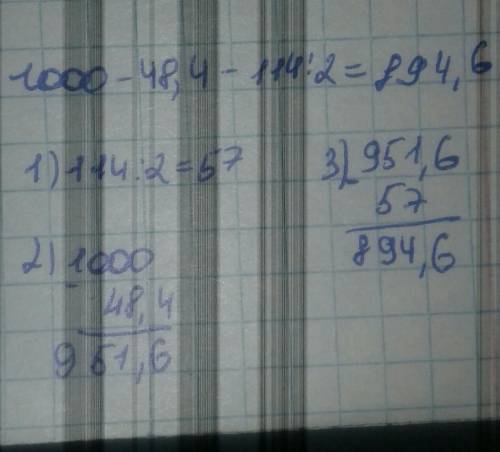 1000 - 48,4 - 114:2 = 894,6
1) 114:2 = 57
2) 1000
- 48,4
951,6
3) 951,6
- 57
894,6